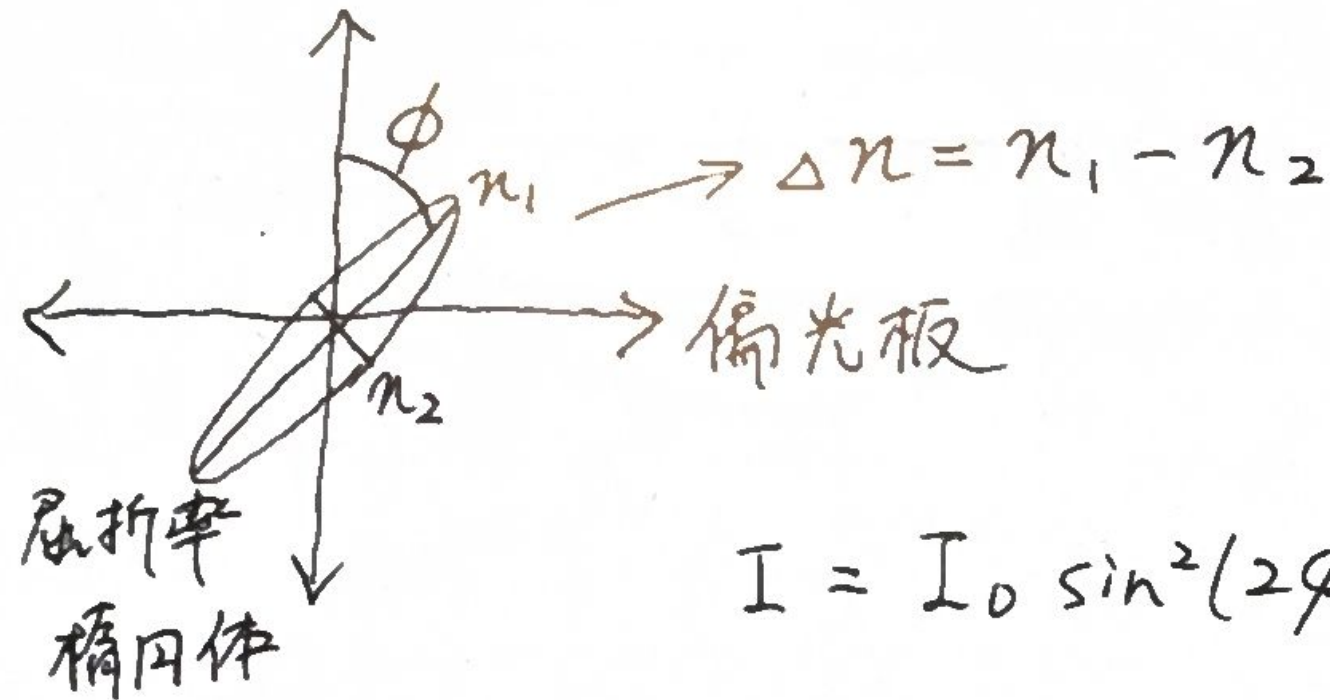 ϕ
n₁
Δn = n₁ - n₂
偏光板
n₂
屈折率
楕円体
I = I₀ sin²(2ϕ